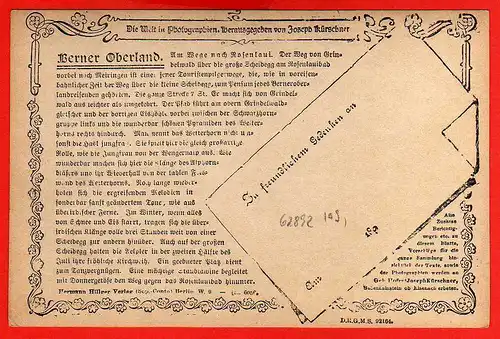 Die Welt in Photographien. Herausgegeben von Joseph Kürschner
Berner Oberland. Am Wege nach Rosenlaui. Der Weg von Grin-
delwald über die große Scheidegg am Rosenlauibad
vorbei nach Meiringen ist eine jener Touristenpilgerwege, die, wie in voreisen-
bahnlicher Zeit der Weg über die kleine Scheidegg, zum Pensum jedes Bernerober-
landreisenden gehörten. Die ganze Strecke 7 St. Er macht sich von Grindel-
wald aus leichter als umgekehrt. Der Pfad führt am obern Grindelwald-
gletscher und der dortigen Eishöhle vorbei zwischen der Schwarzhorn-
gruppe links und die wunderbar schönen Pyramiden des Wetter-
horns rechts hindurch. Man nennt das Wetterhorn nicht um-
sonst die Hasl jungfrau. Sie spielt hier die gleich großartige
Rolle, wie die Jungfrau von der Wengernalp aus. Wie
wunderbar machen sich hier die Klänge des Alphorn-
bläsers und ihr Wiederhall von der kahlen Fels-
wand des Wetterhorns. Noch lange wieder-
holen sich die ergreifenden Melodien in
sonderbar sanft geänderten Tone, wie aus
überirdischer Ferne. Im Winter, wenn alles
von Schnee und Eis starrt, tragen sich die über-
irdischen Klänge volle drei Stunden weit von einer
Scheidegg zur andern hinüber. Auch auf der großen
Scheidegg halten die Aelpler in der zweiten Hälfte des
Juli ihre fröhliche Kirchweih. Ein geebneter Platz dient
zum Tanzvergnügen. Eine mächtige Staublawine begleitet
mit Donnergetöse den Weg gegen das Rosenlauibad hinunter.
Hermann Hillger Verlag Berlin W. 9
Zu freundlichem Gedenken an
62892 103,
189
Aus
Zusätze
Berichtig-
ungen etc. zu
diesem Blatte,
Vorschläge für die
ganze Sammlung hin-
sichtlich des Textes, sowie
der Photographien werden an
Geh. Hofrat Joseph Kürschner,
Hohenhainstein ob Eisenach erbeten.
D.R.G.M.S. 92164.